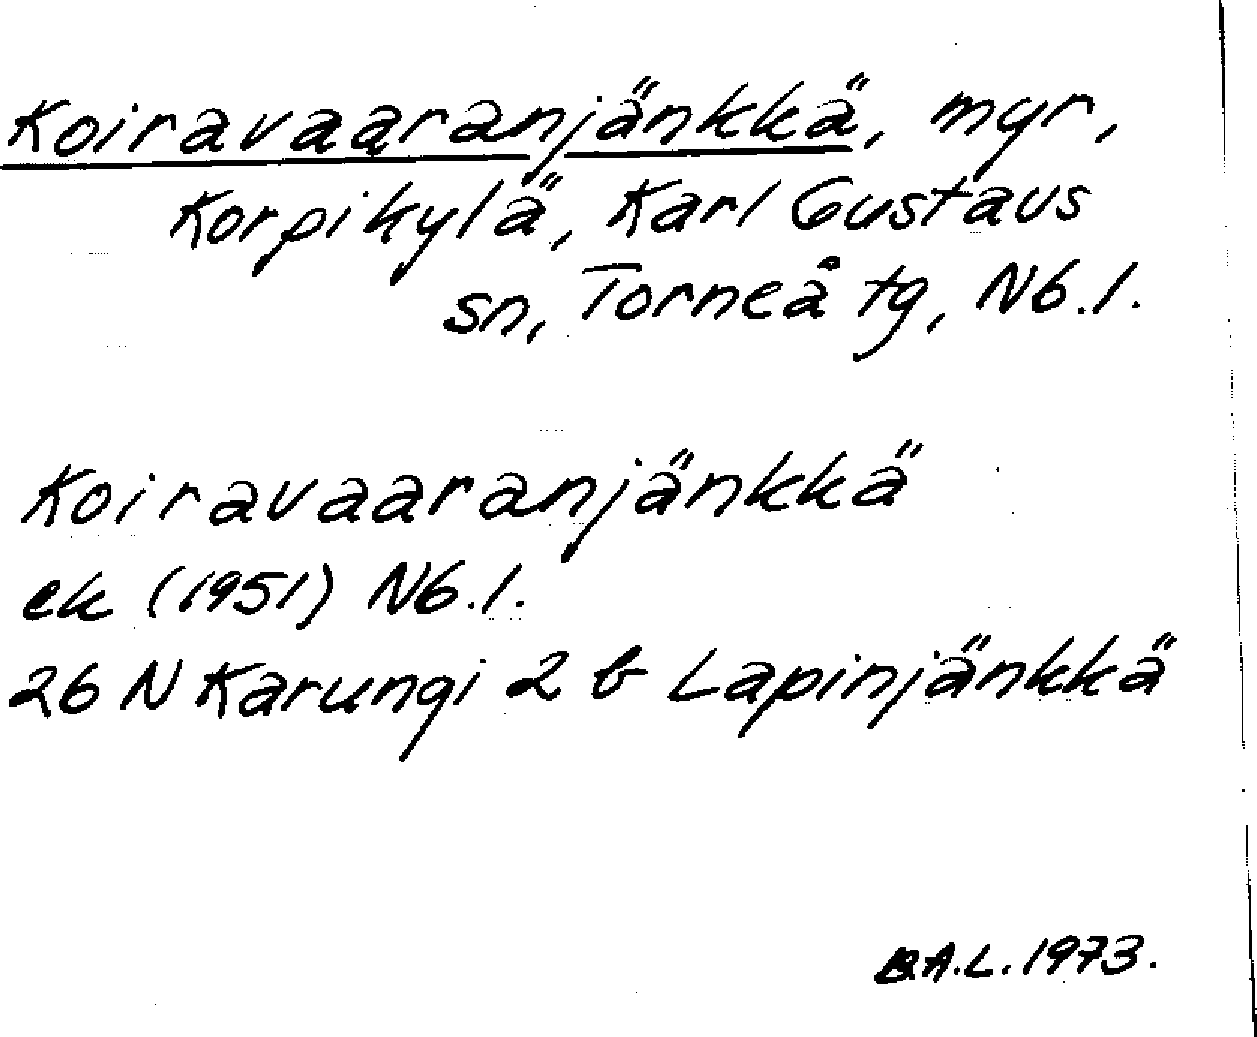 Koiravaaranjänkkä, myr,
Korpikylä, Karl Gustavs
sn, Torneå tg, Nb.l.
Koiravaaranjänkkä
ek (1951) Nb.l.
26 N Karungi 2 b Lapinjänkkä
B.A.L. 1973.